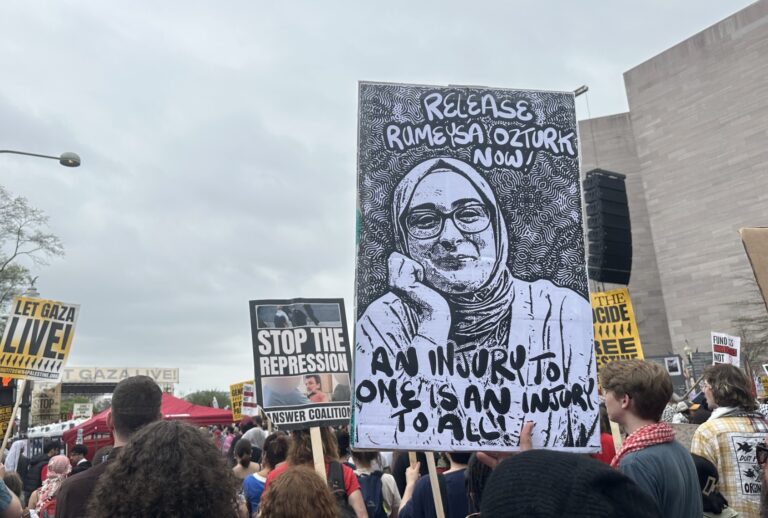 RELEASE
RUMEYSA OZTURK
NOW!
AN INJURY TO
ONE IS AN INJURY
TO ALL!
LET GAZA
LIVE!
LET GAZA LIVE!
STOP THE
REPRESSION
ANSWER COALITION
THE
FREE
FUND
NOT